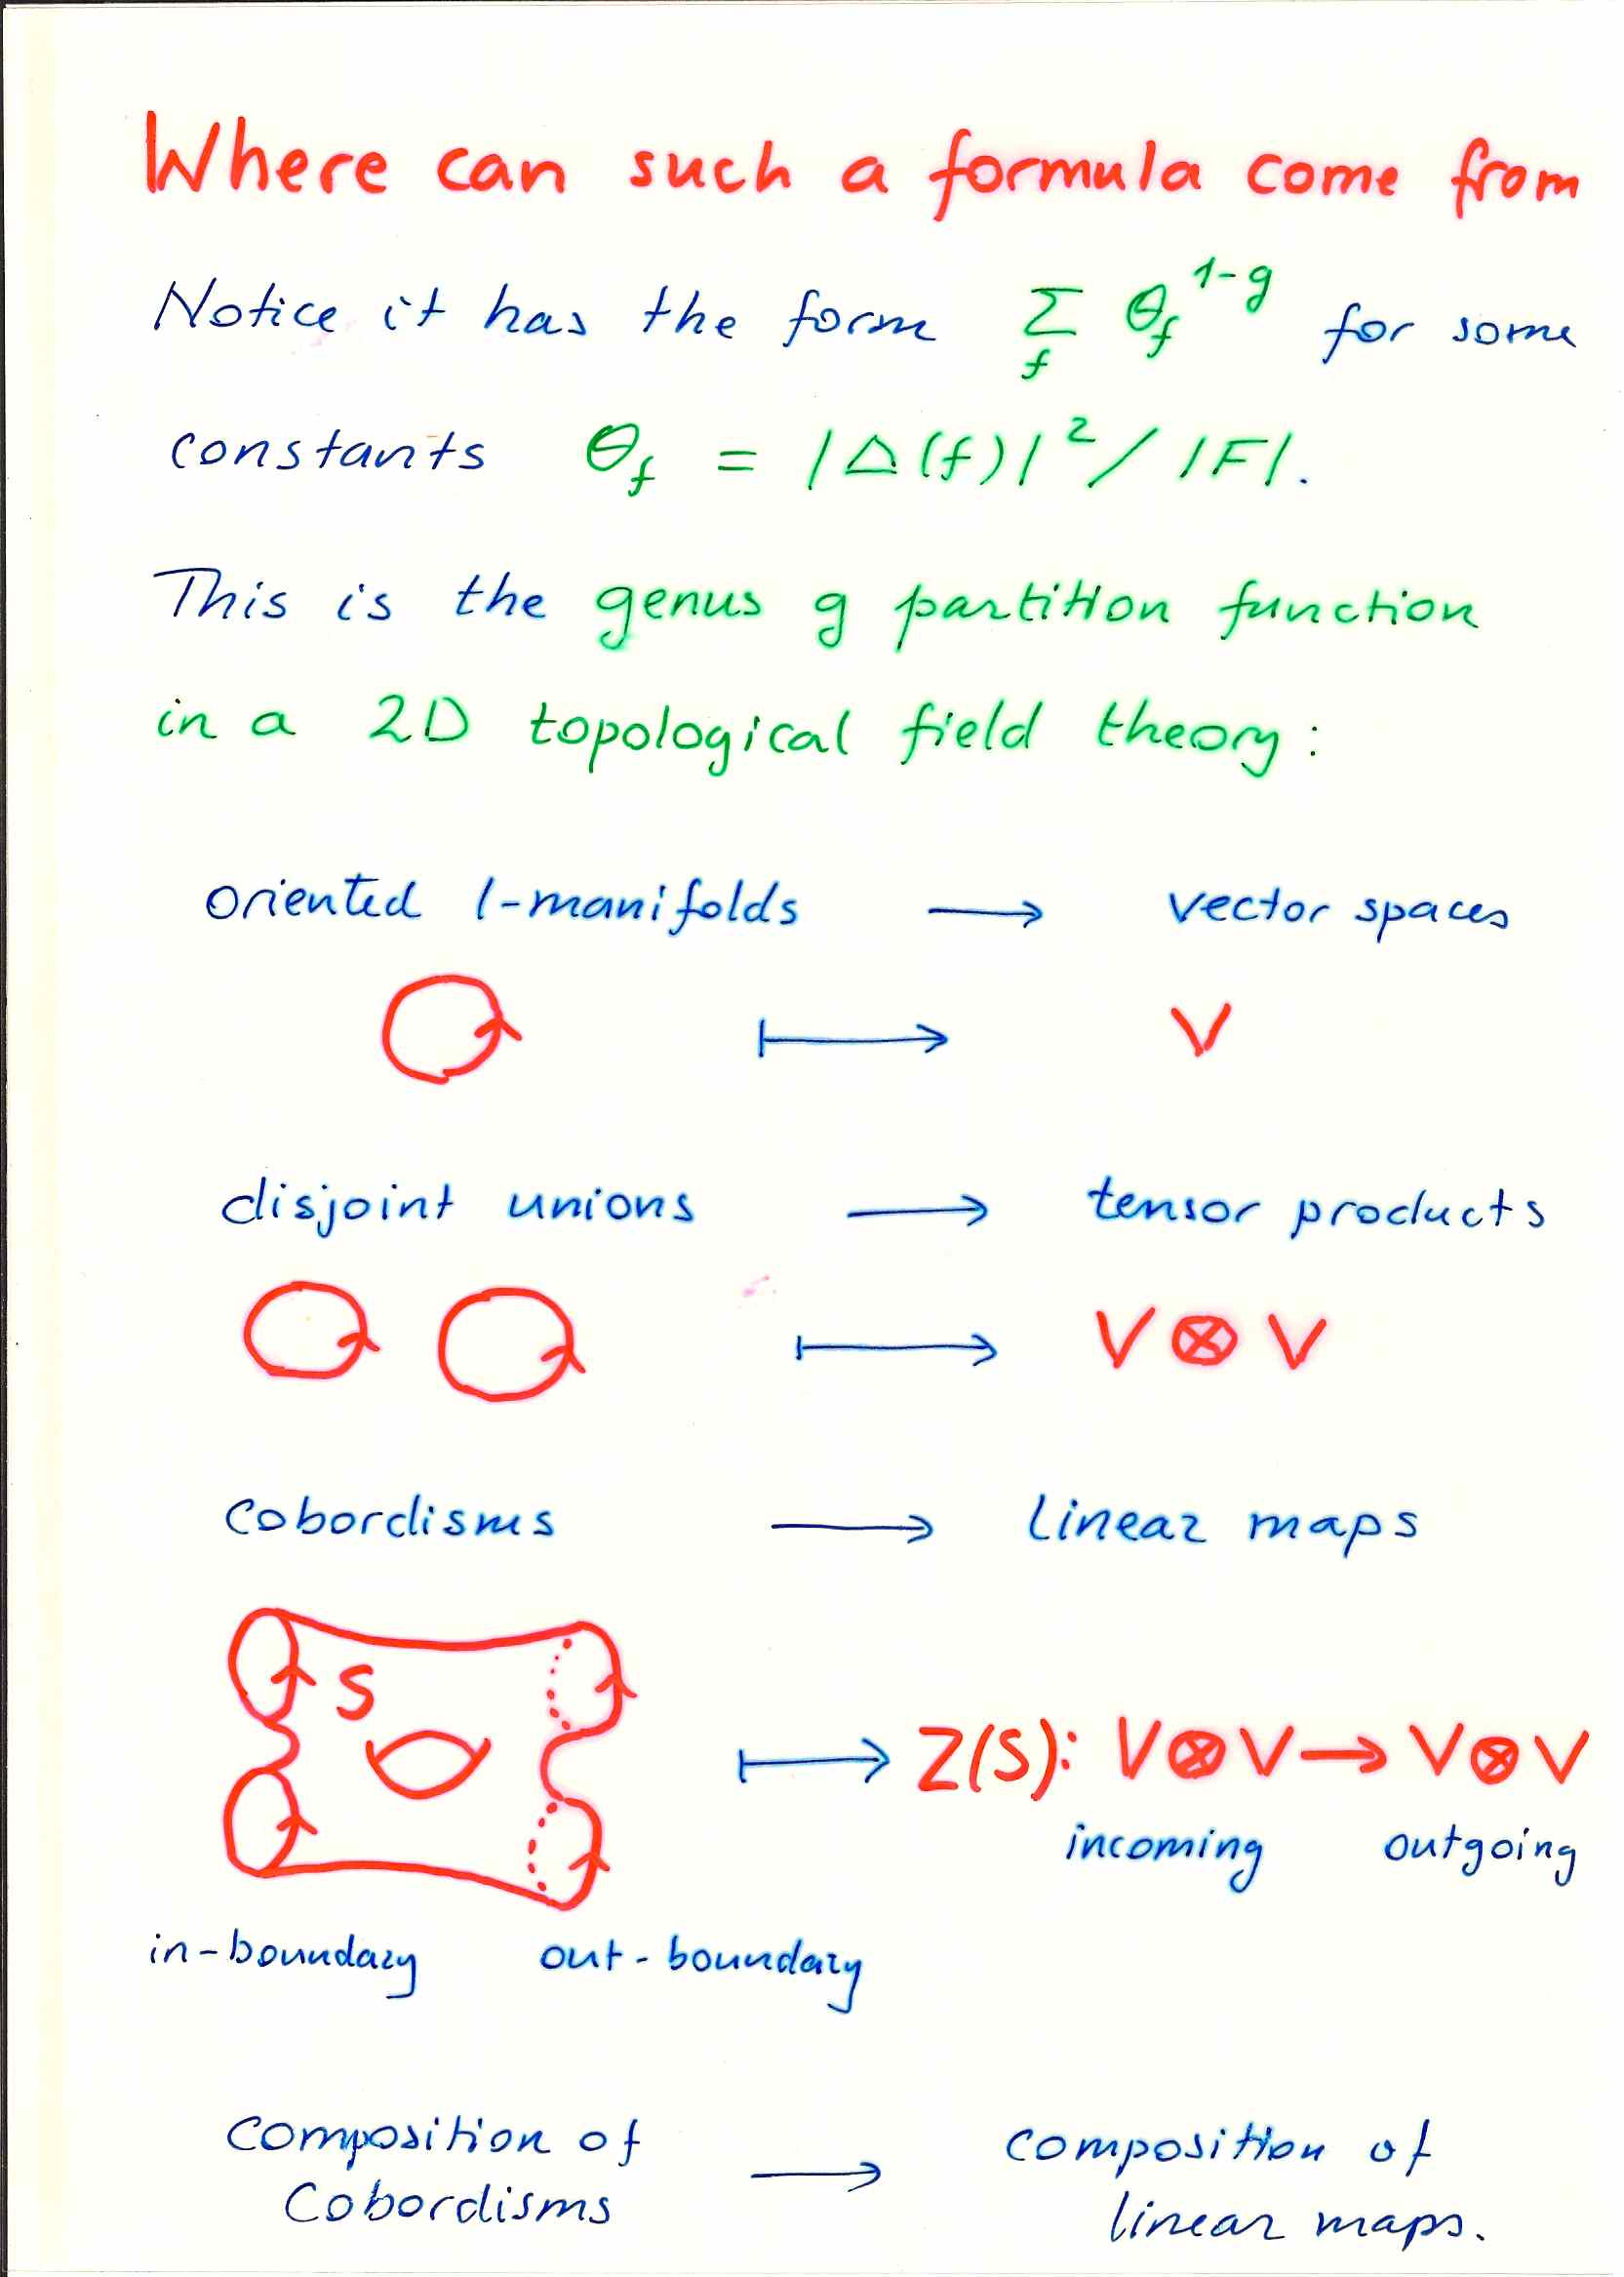 Where can such a formula come from
Notice it has the form Σ_f θ_f^{1-g} for some
constants θ_f = |Δ(f)|²/|F|.
This is the genus g partition function
in a 2D topological field theory:
oriented 1-manifolds → vector spaces
↦ V
disjoint unions → tensor products
↦ V⊗V
cobordisms → linear maps
S ↦ Z(S): V⊗V → V⊗V
incoming outgoing
in-boundary out-boundary
composition of → composition of
Cobordisms linear maps.